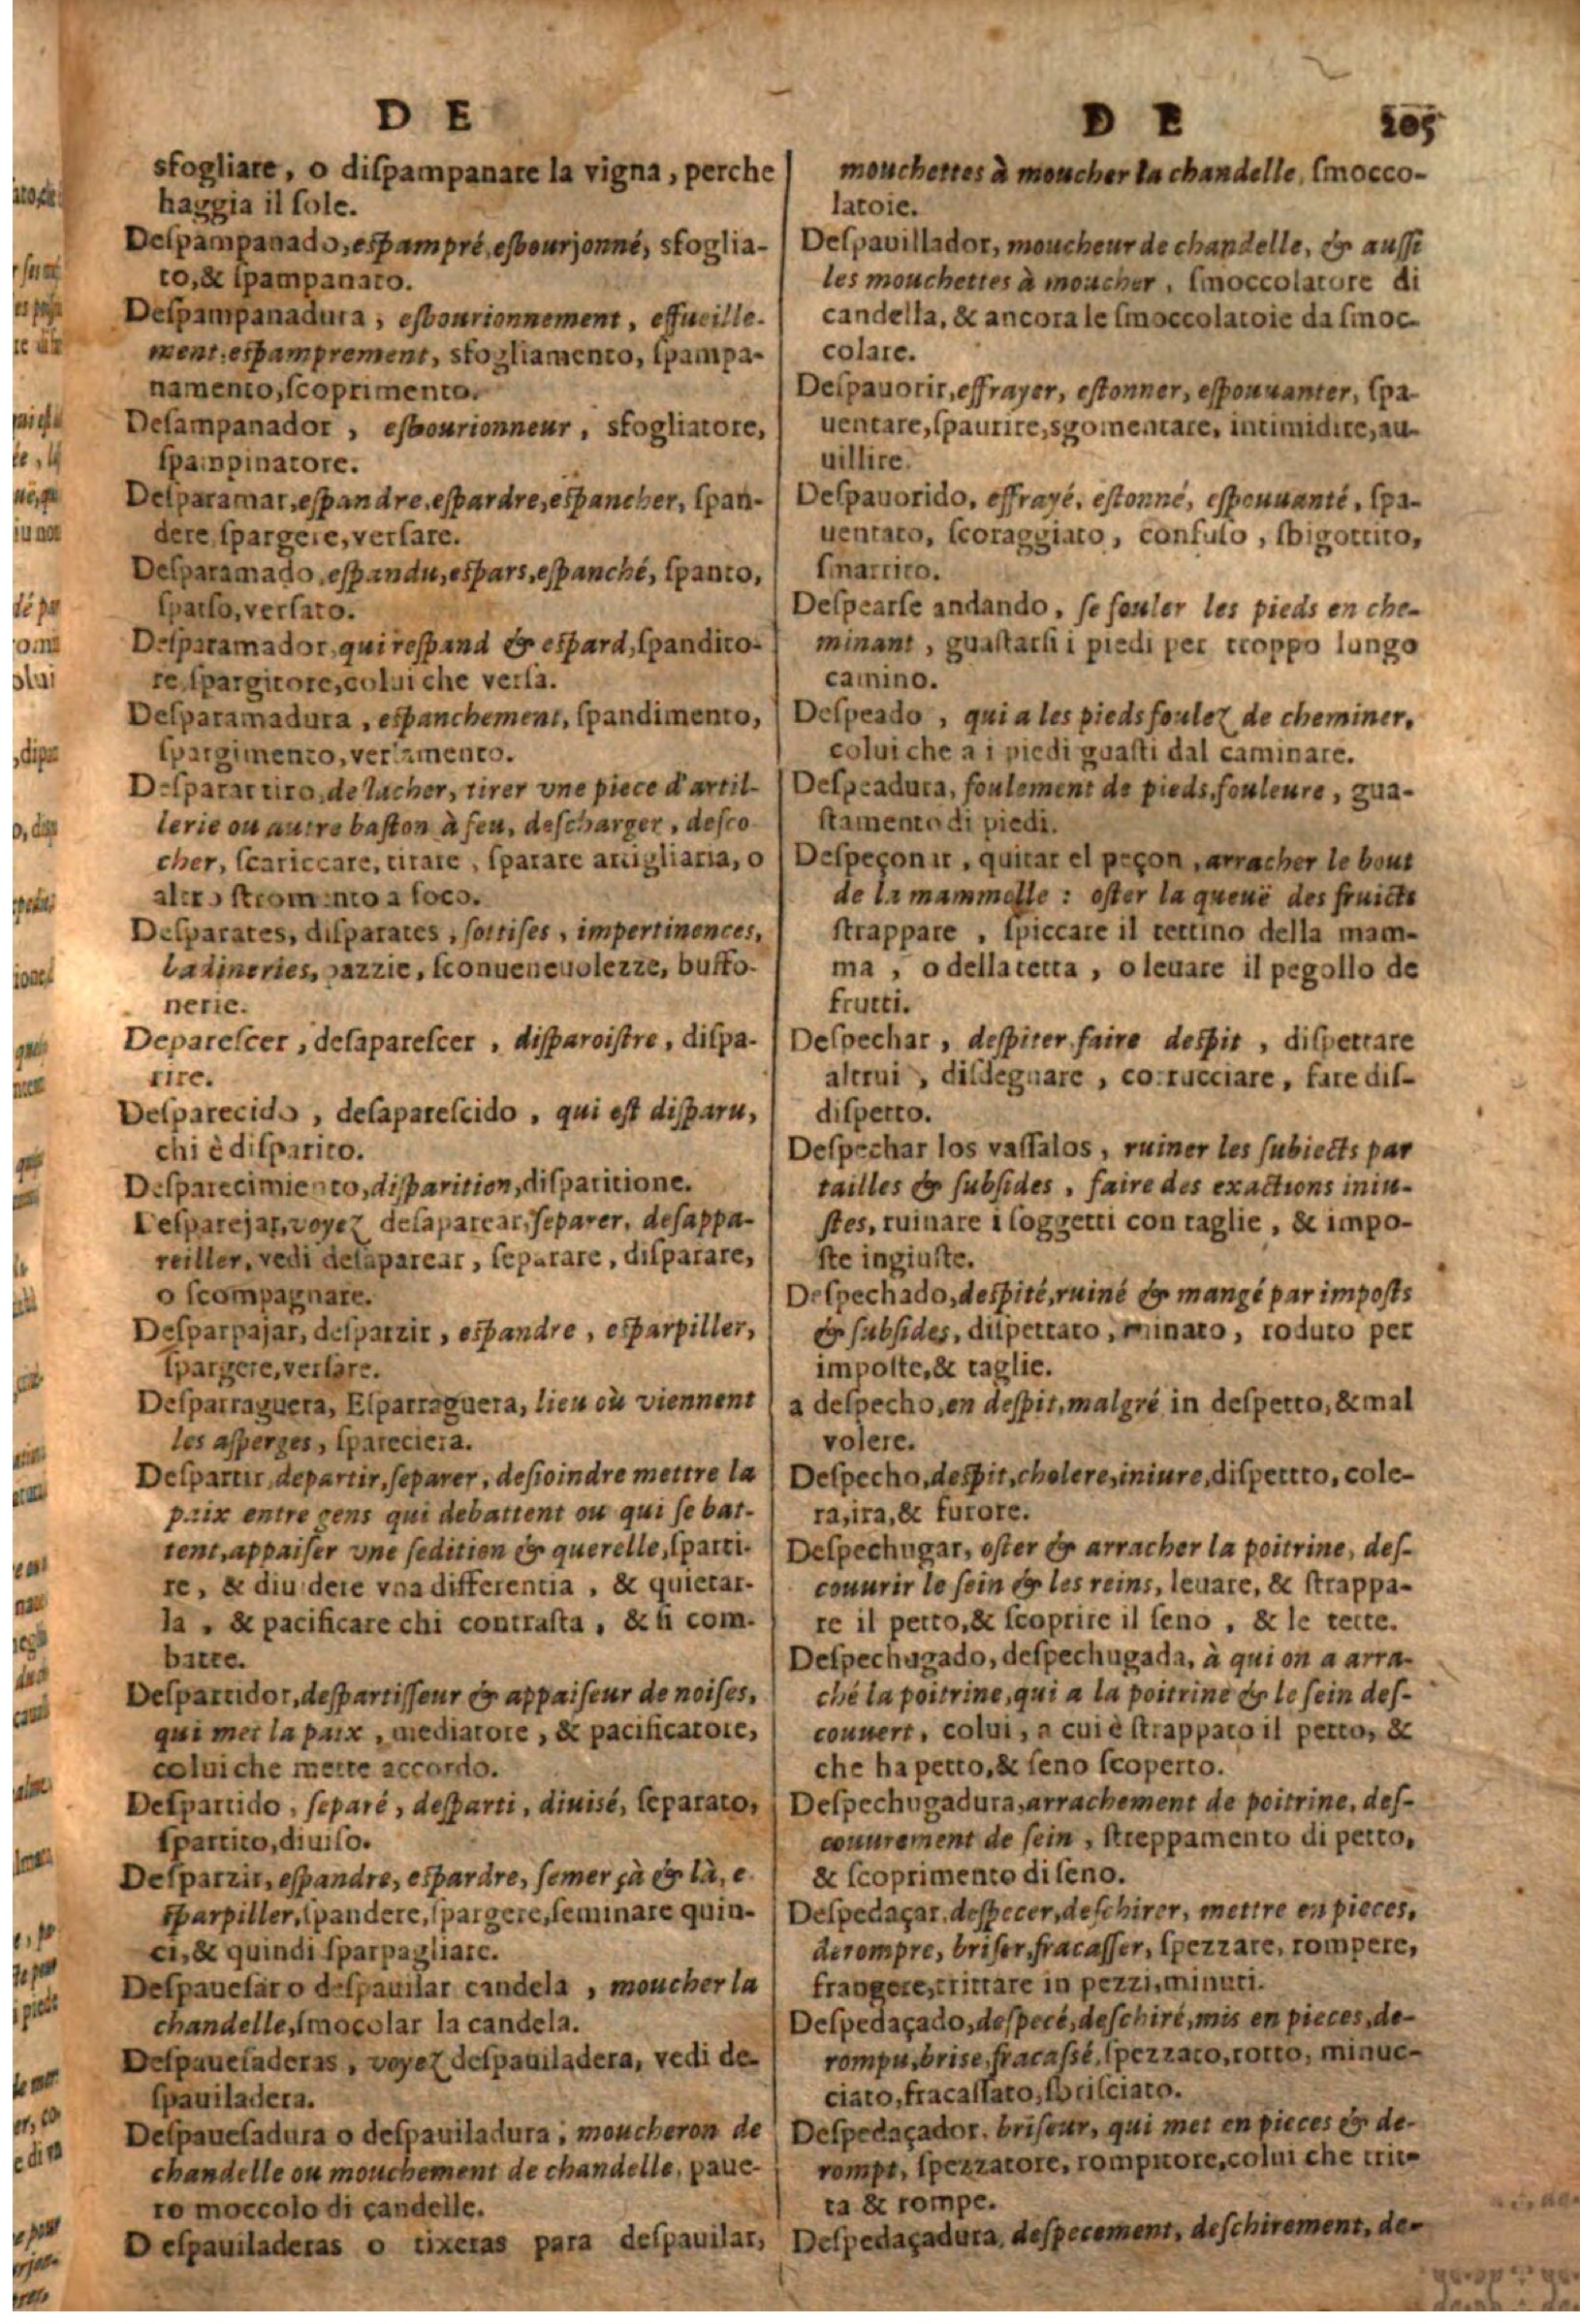 D E
sfogliare, o diſpampanare la vigna, perche
haggia il ſole.
Deſpampanado, eſpampré, eſbourjonné, sfoglia-
to, & ſpampanato.
Deſpampanadura, eſbourionnement, effueille-
ment, eſpamprement, sfogliamento, ſpampa-
namento, ſcoprimento.
Deſampanador, eſbourionneur, sfogliatore,
ſpampinatore.
Deſparamar, eſpandre, eſpardre, eſpancher, ſpan-
dere, ſpargere, verſare.
Deſparamado, eſpandu, eſpars, eſpanché, ſpanto,
ſparſo, verſato.
Deſparamador, qui reſpand & eſpard, ſpandito-
re, ſpargitore, colui che verſa.
Deſparamadura, eſpanchement, ſpandimento,
ſpargimento, verſamento.
Deſparar tiro, delacher, tirer vne piece d'artil-
lerie ou autre baſton à feu, deſcharger, deſco-
cher, ſcariccare, tirare, ſparare artigliaria, o
altro ſtromento a foco.
Deſparates, diſparates, ſottiſes, impertinences,
badineries, pazzie, ſconueneuolezze, buffo-
nerie.
Depareſcer, deſapareſcer, diſparoiſtre, diſpa-
rire.
Deſparecido, deſapareſcido, qui eſt diſparu,
chi è diſparito.
Deſparecimiento, diſparition, diſparitione.
Deſparejar, voyez deſaparear, ſeparer, deſappa-
reiller, vedi deſaparear, ſeparare, diſparare,
o ſcompagnare.
Deſparpajar, deſparzir, eſpandre, eſparpiller,
ſpargere, verſare.
Deſparraguera, Eſparraguera, lieu où viennent
les aſperges, ſpareciera.
Deſpartir, departir, ſeparer, deſioindre mettre la
paix entre gens qui debattent ou qui ſe bat-
tent, appaiſer vne ſedition & querelle, ſparti-
re, & diuidere vna differentia, & quietar-
la, & pacificare chi contraſta, & ſi com-
batte.
Deſpartidor, deſpartiſſeur & appaiſeur de noiſes,
qui met la paix, mediatore, & pacificatore,
colui che mette accordo.
Deſpartido, ſeparé, deſparti, diuiſé, ſeparato,
ſpartito, diuiſo.
Deſparzir, eſpandre, eſpardre, ſemer çà & là, e-
ſparpiller, ſpandere, ſpargere, ſeminare quin-
ci, & quindi ſparpagliare.
Deſpaueſar o deſpauilar candela, moucher la
chandelle, ſmocolar la candela.
Deſpaueſaderas, voyez deſpauiladera, vedi de-
ſpauiladera.
Deſpaueſadura o deſpauiladura, moucheron de
chandelle ou mouchement de chandelle, paue-
ro moccolo di candelle.
Deſpauiladeras o tixeras para deſpauilar,
D E 205
mouchettes à moucher la chandelle, ſmocco-
latoie.
Deſpauillador, moucheur de chandelle, & auſſi
les mouchettes à moucher, ſmoccolatore di
candella, & ancora le ſmoccolatoie da ſmoc-
colare.
Deſpauorir, effrayer, eſtonner, eſpouuanter, ſpa-
uentare, ſpaurire, sgomentare, intimidire, au-
uillire.
Deſpauorido, effrayé, eſtonné, eſpouuanté, ſpa-
uentato, ſcoraggiato, confuſo, ſbigottito,
ſmarrito.
Deſpearſe andando, ſe fouler les pieds en che-
minant, guaſtarſi i piedi per troppo lungo
camino.
Deſpeado, qui a les pieds foulez de cheminer,
colui che a i piedi guaſti dal caminare.
Deſpeadura, foulement de pieds, fouleure, gua-
ſtamento di piedi.
Deſpeçonar, quitar el peçon, arracher le bout
de la mammelle : oſter la queuë des fruicts
ſtrappare, ſpiccare il tettino della mam-
ma, o della tetta, o leuare il pegollo de
frutti.
Deſpechar, deſpiter, faire deſpit, diſpettare
altrui, diſdegnare, corrucciare, fare diſ-
diſpetto.
Deſpechar los vaſſalos, ruiner les ſubiects par
tailles & ſubſides, faire des exactions iniu-
ſtes, ruinare i ſoggetti con taglie, & impo-
ſte ingiuſte.
Deſpechado, deſpité, ruiné & mangé par impoſts
& ſubſides, diſpettato, ruinato, roduto per
impoſte, & taglie.
a deſpecho, en deſpit, malgré in deſpetto, & mal
volere.
Deſpecho, deſpit, cholere, iniure, diſpettto, cole-
ra, ira, & furore.
Deſpechugar, oſter & arracher la poitrine, deſ-
couurir le ſein & les reins, leuare, & ſtrappa-
re il petto, & ſcoprire il ſeno, & le tette.
Deſpechugado, deſpechugada, à qui on a arra-
ché la poitrine, qui a la poitrine & le ſein deſ-
couuert, colui, a cui è ſtrappato il petto, &
che ha petto, & ſeno ſcoperto.
Deſpechugadura, arrachement de poitrine, deſ-
couurement de ſein, ſtreppamento di petto,
& ſcoprimento di ſeno.
Deſpedaçar, deſpecer, deſchirer, mettre en pieces,
derompre, briſer, fracaſſer, ſpezzare, rompere,
frangere, trittare in pezzi, minuti.
Deſpedaçado, deſpecé, deſchiré, mis en pieces, de-
rompu, brise, fracaſſé, ſpezzato, rotto, minuc-
ciato, fracaſſato, ſbriſciato.
Deſpedaçador, briſeur, qui met en pieces & de-
rompt, ſpezzatore, rompitore, colui che trit-
ta & rompe.
Deſpedaçadura, deſpecement, deſchirement, de-